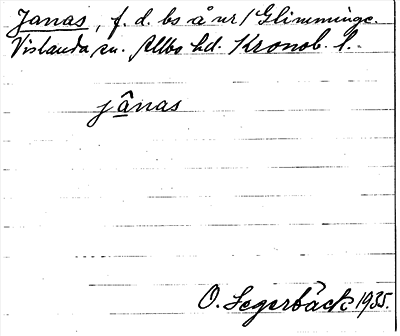 Janas, f. d. bs å nr 1 Glimminge.
Vislanda sn. Allbo hd. Kronob. l.
jânas
O. Segerbäck 1935.